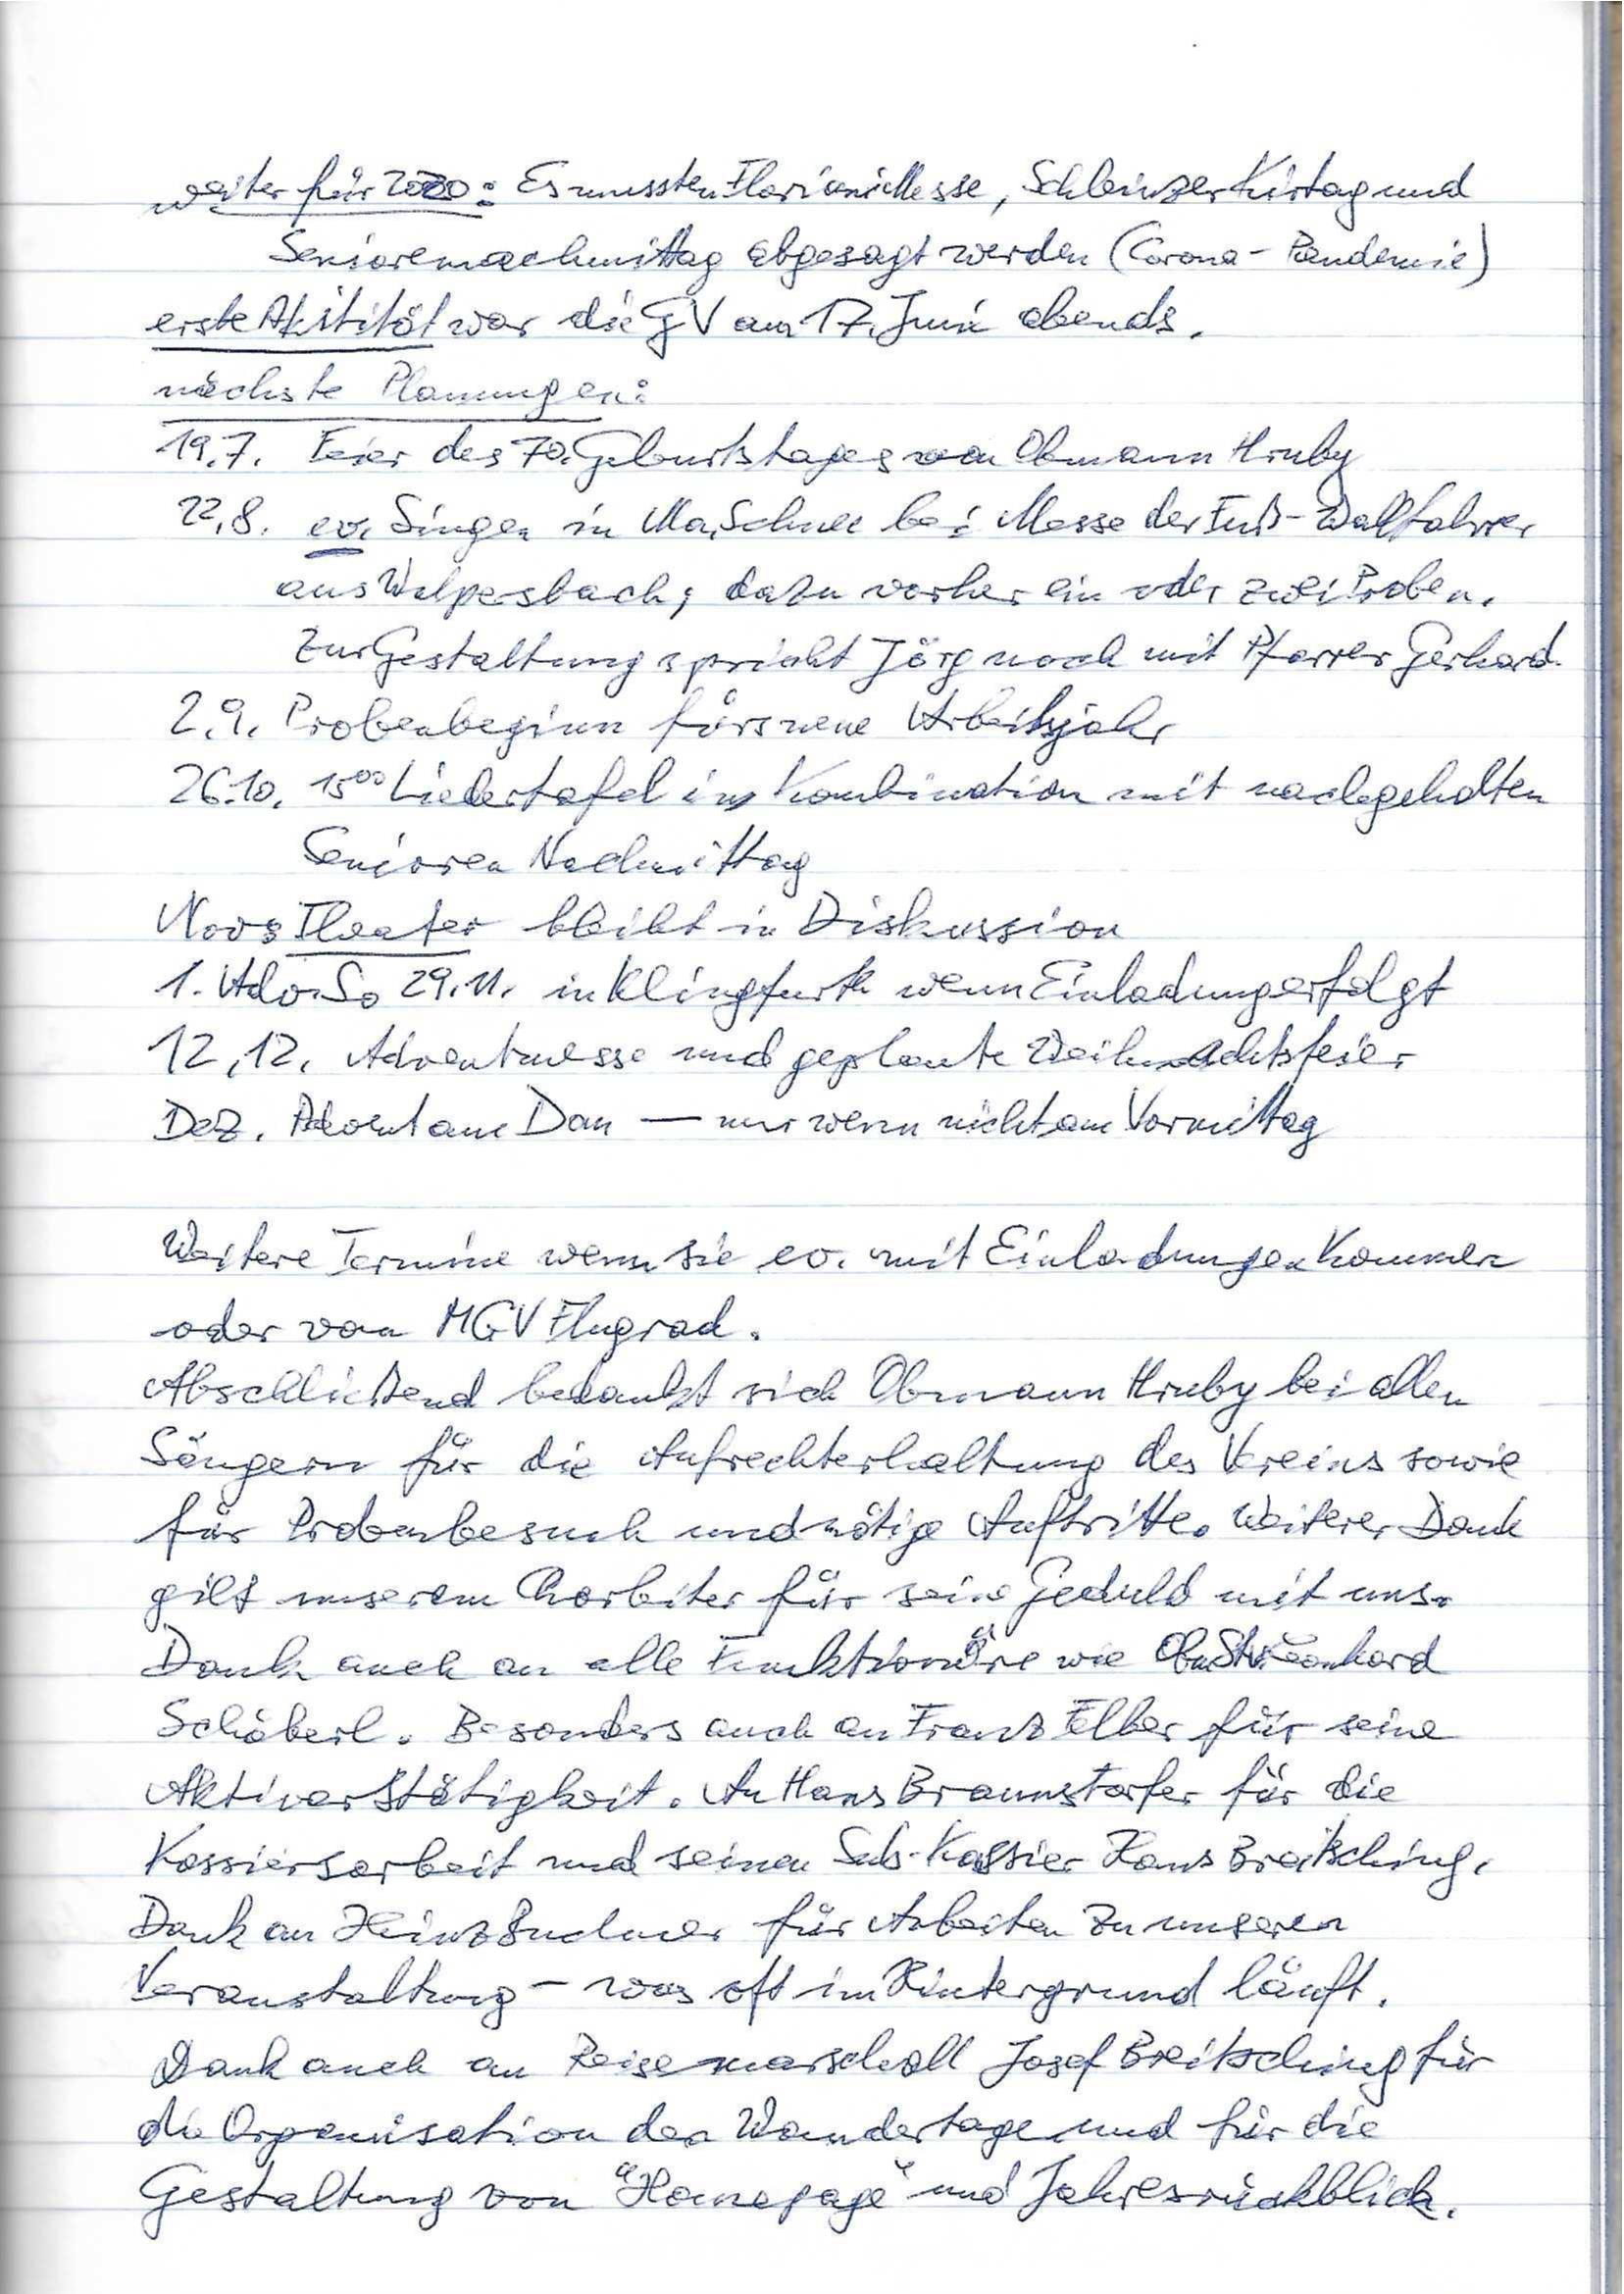 weiter für 2020: Es mussten Florianimesse, Schleinzer Kirtag und
Seniorennachmittag abgesagt werden (Corona-Pandemie)
erste Aktitität war die GV am 17. Juni abends.
nächste Planungen:
19.7. Feier des 70. Geburtstages von Obmann Hruby
22.8. ev. Singen in Ma. Schnee bei Messe der Fuß-Wallfahrer
aus Walpersbach; dazu vorher ein oder zwei Proben.
Zur Gestaltung spricht Jörg noch mit Pfarrer Gerhard.
2.9. Probenbeginn fürs neue Arbeitsjahr
26.10. 15⁰⁰ Liedertafel in Kombination mit nachgeholten
Senioren Nachmittag
Nov: Theater bleibt in Diskussion
1. Adv. So 29.11. in Klingfurth wenn Einladung erfolgt
12.12. Adventmesse und geplante Weihnachtsfeier
Dez. Advent am Dom — nur wenn nicht am Vormittag
Weitere Termine wenn sie ev. mit Einladungen kommen
oder vom MGV Flugrad.
Abschließend bedankt sich Obmann Hruby bei allen
Sängern für die Aufrechterhaltung des Vereins sowie
für Probenbesuch und nötige Auftritte. Weiterer Dank
gilt unserem Chorleiter für seine Geduld mit uns.
Dank auch an alle Funktionäre wie ObmStv. Leonhard
Schöberl. Besonders auch an Franz Elber für seine
Aktivarstätigkeit. An Hans Braunstorfer für die
Kassiersarbeit und seinen Sub-Kassier Hans Breitsching.
Dank an Heinz für Arbeiten zu unseren
Veranstaltung – was oft im Hintergrund läuft.
Dank auch an Reisemarschall Josef Breitsching für
die Organisation der Wandertage und für die
Gestaltung von "Homepage" und Jahresrückblick.